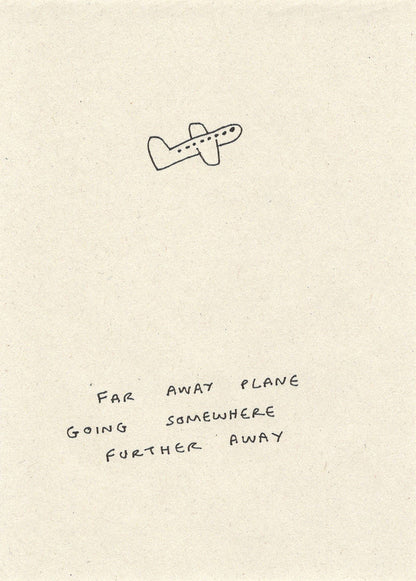 FAR AWAY PLANE
GOING SOMEWHERE
FURTHER AWAY